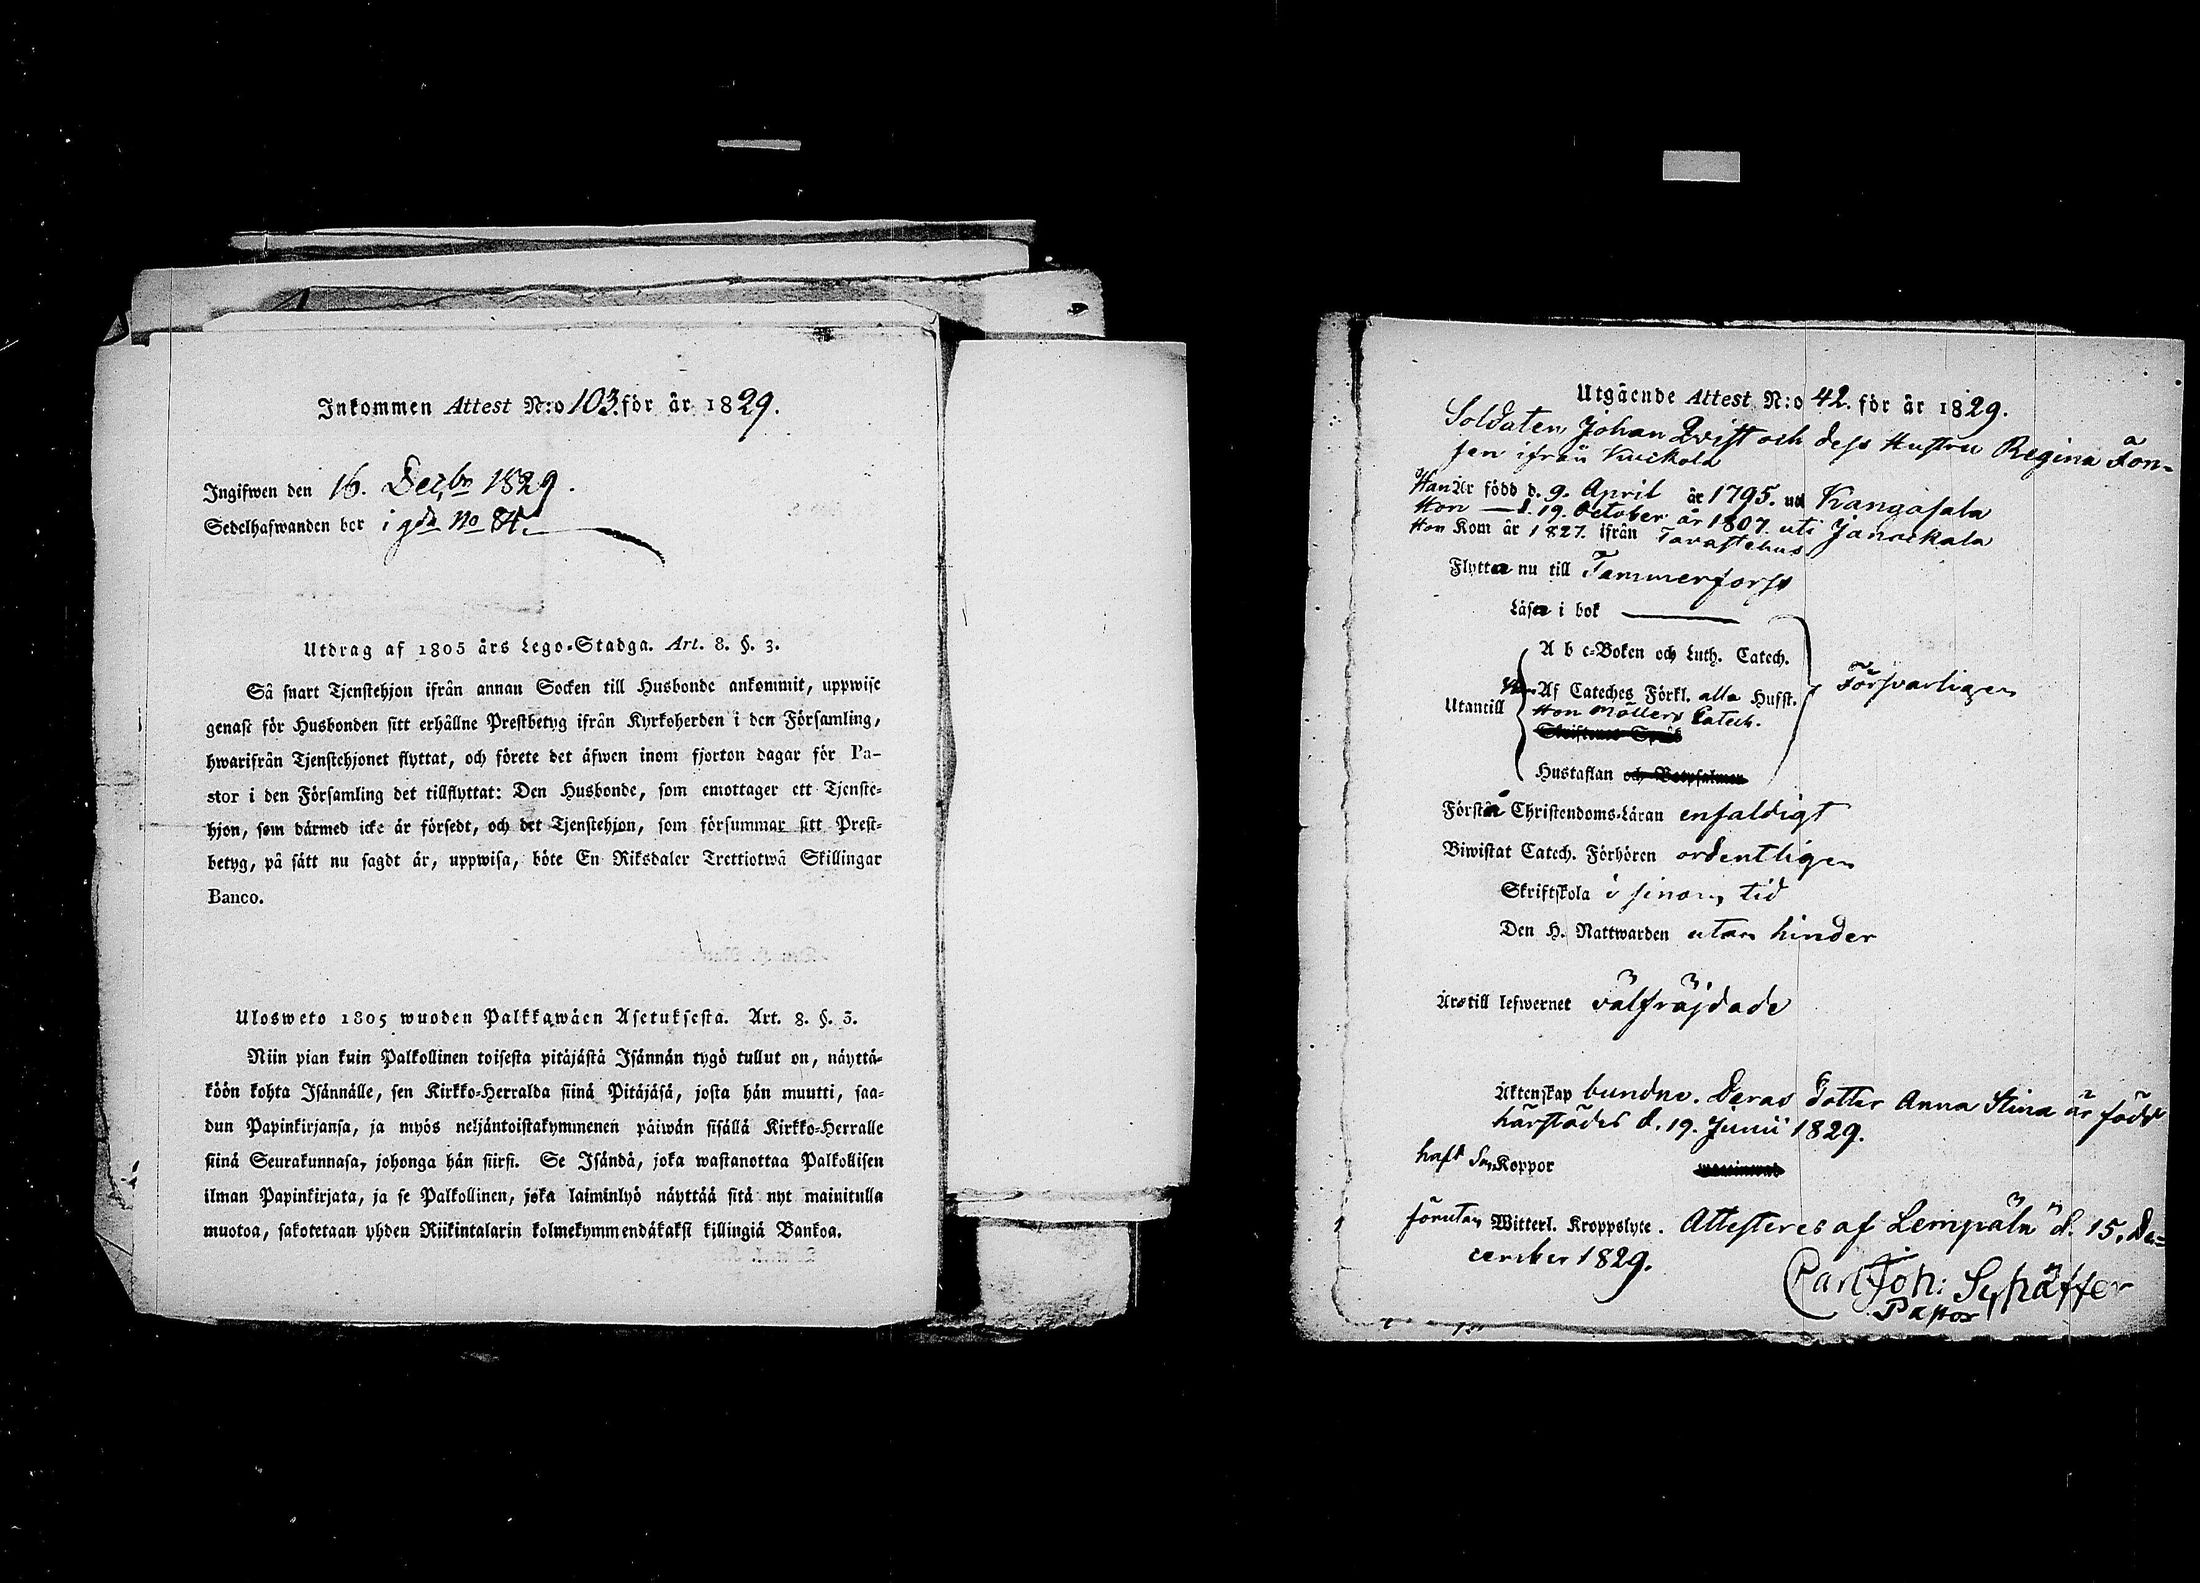 Inkommen Attest N:o 103. för år 1829.
Ingifwen den 16. Decbr 1829.
Sedelhafwanden bor i gdn No 84.
Utdrag af 1805 års Lego-Stadga. Art. 8. §. 3.
Så snart Tjenstehjon ifrån annan Socken till Husbonde ankommit, uppwise
genast för Husbonden sitt erhållne Prestbetyg ifrån Kyrkoherden i den Församling,
hwarifrån Tjenstehjonet flyttat, och förete det äfwen inom fjorton dagar för Pa-
stor i den Församling det tillflyttat: Den Husbonde, som emottager ett Tjenste-
hjon, som därmed icke är försedt, och det Tjenstehjon, som försummar sitt Prest-
betyg, på sätt nu sagdt är, uppwisa, böte En Riksdaler Trettiotwå Skillingar
Banco.
Ulosweto 1805 wuoden Palkkawäen Asetuksesta. Art. 8. §. 3.
Niin pian kuin Palkollinen toisesta pitäjästä Isännän tygö tullut on, näyttä-
köön kohta Isännälle, sen Kirkko-Herralda siinä Pitäjäsä, josta hän muutti, saa-
dun Papinkirjansa, ja myös neljäntoistakymmenen päiwän sisällä Kirkko-Herralle
siinä Seurakunnasa, johonga hän siirsi. Se Isändä, joka wastanottaa Palkollisen
ilman Papinkirjata, ja se Palkollinen, joka laiminlyö näyttää sitä nyt mainitulla
muotoa, sakotetaan yhden Riikintalarin kolmekymmendäkaksi killingiä Bankoa.
Utgående Attest N:o 42. för år 1829.
Soldaten Johan Qvist och dess Hustru Regina Fon-
sen ifrån Kuckola
Han Är född d. 9. April år 1795. uti Kangasala
Hon — d. 19. October år 1807. uti Janackala
Hon Kom år 1827. ifrån Tavastehus
Flytta nu till Tammerforss
Läsa i bok
A b c-Boken och Luth. Catech.
Af Cateches Förkl. alla Hufst. Försvarligen
Utantill Hon Möllers Catech.
Skriftenes Språk
Hustaflan och Botpsalmen
Förstå Christendoms-Läran enfaldigt
Biwistat Catech. Förhören ordentligen
Skriftskola i sinom tid
Den H. Nattwarden utan hinder
Äro till lefwernet välfräjdade
Äktenskap bundne. Deras dotter Anna Stina är född
härstädes d. 19. Junii 1829.
haft Koppor
förutan Witterl. Kroppslyte. Attesteres af Lempälä d. 15. De-
cember 1829.
Carl Joh: Schäffer
Pastor